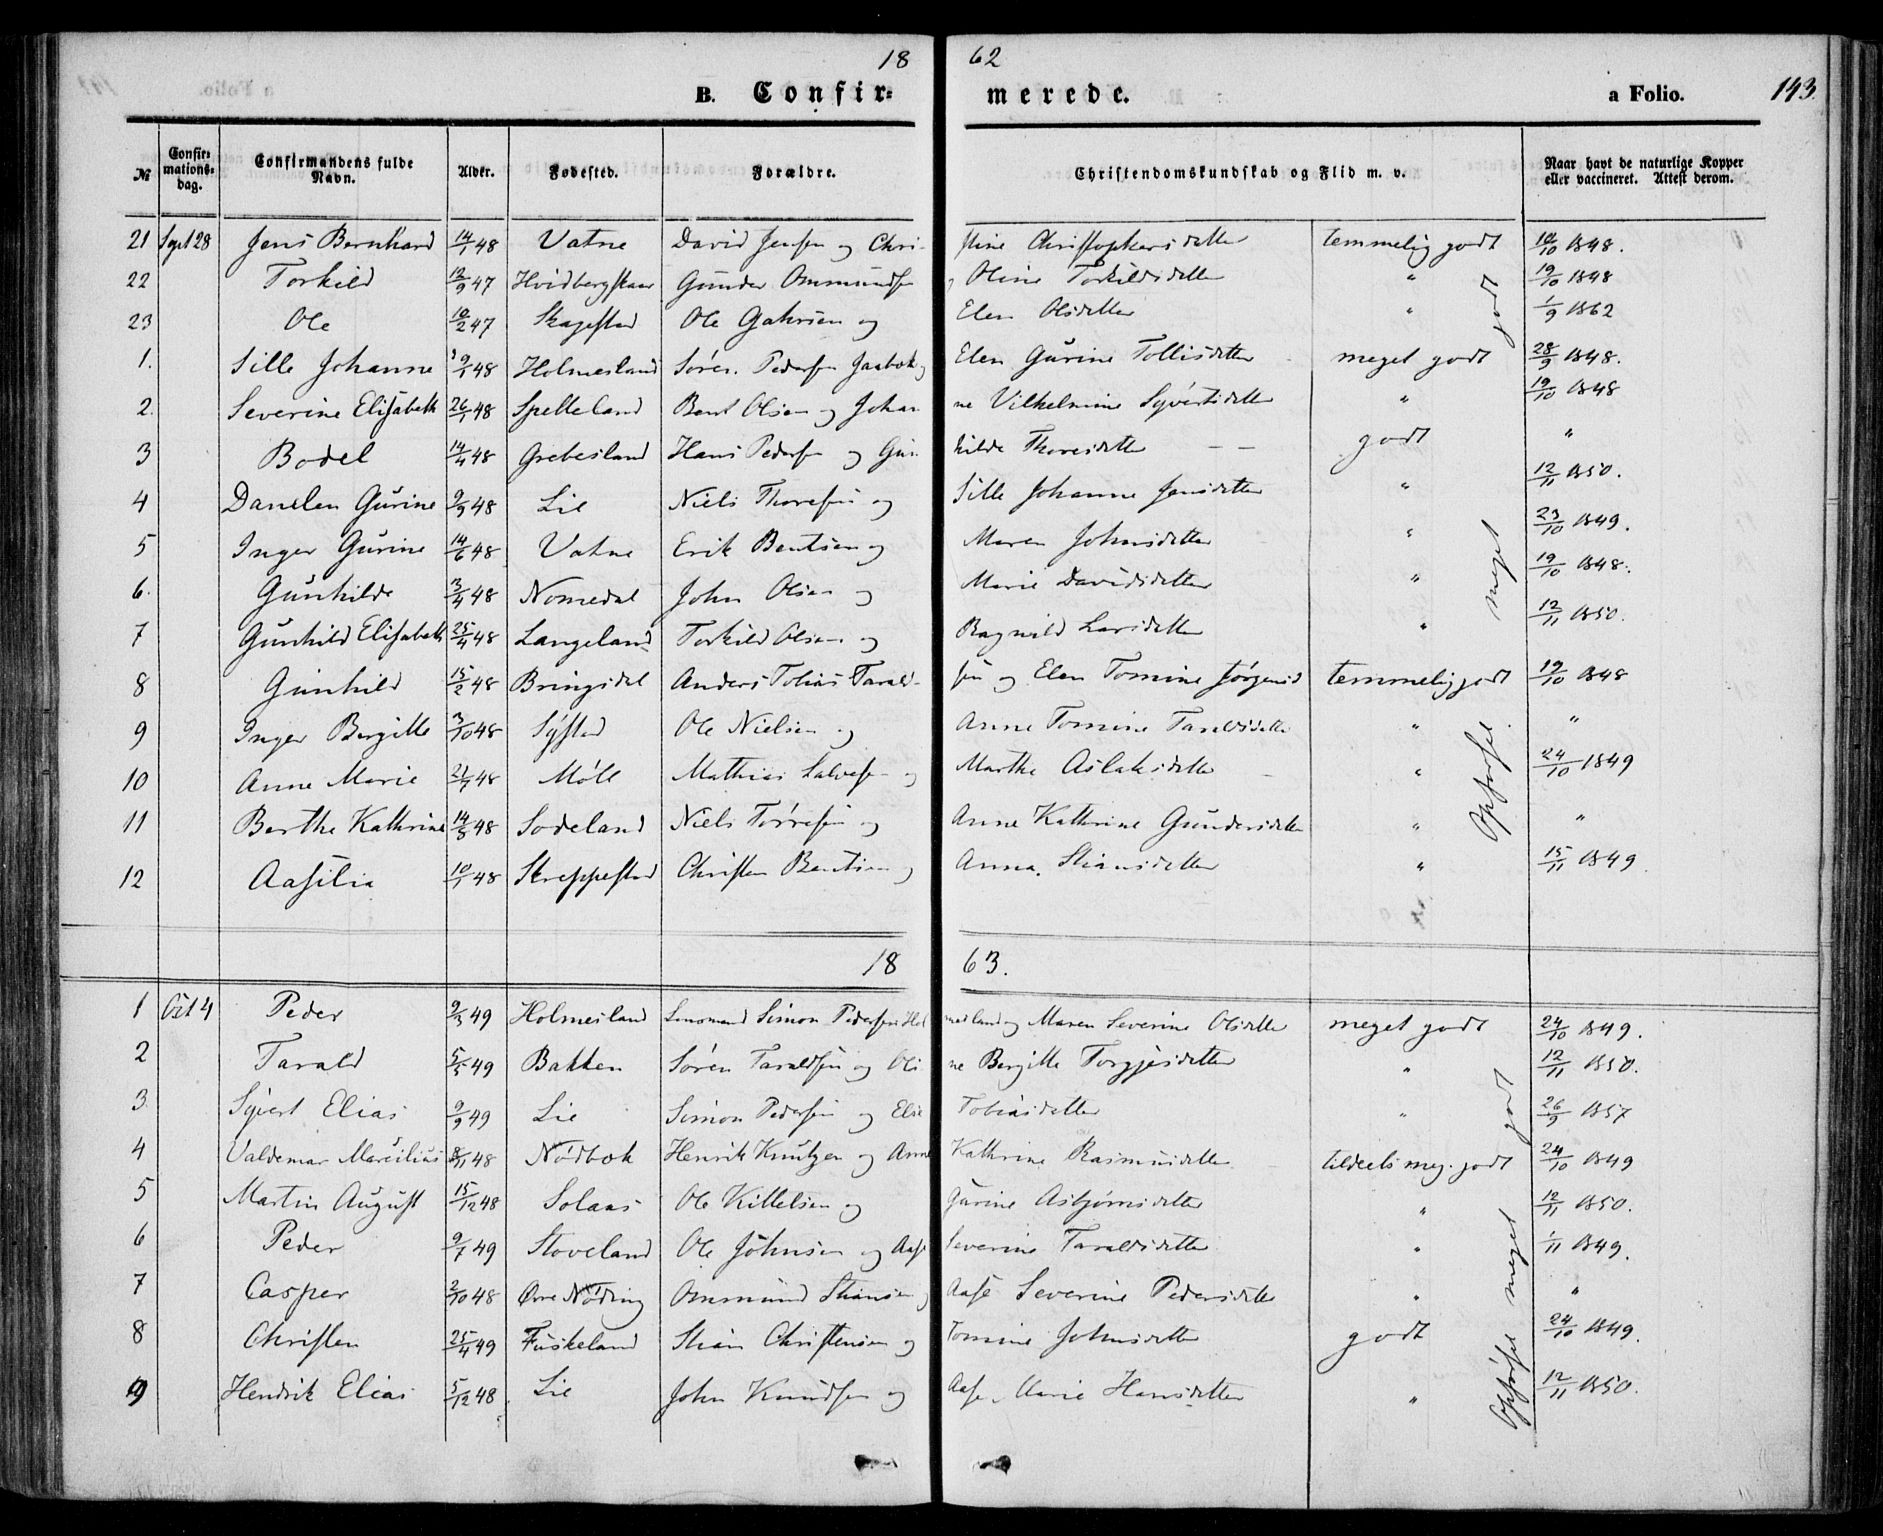 18 62
B. Confir= merede. a Folio. 143.
№ Confir=mations=dag. Confirmandens fulde Navn. Alder. Fødested. Forældre. Christendomskundskab og Flid m. v. Naar havt de naturlige Kopper eller vaccineret. Attest derom.
21 Sept 28 Jens Bernhard 14/1 48 Vatne David Jensen og Chri- stine Christophersdatter temmelig godt 19/10 1848.
22 Torkild 12/9 47 Hvidbergskaar Gunder Ommundsen og Oline Torkildsdatter " 19/10 1848
23 Ole 10/2 47 Skagestad Ole Gahrsen og Elen Olsdatter " 1/9 1862
1. Sille Johanne 9/1 48 Holmesland Søren Pedersen Jaabek og Elen Gurine Tollisdatter meget godt 28/9 1848.
2. Severine Elisabeth 26/1 48 Spelleland Bent Olsen og Johan- ne Vilhelmine Syvertsdatter " 19/10 1848
3 Bodel 14/4 48 Grebesland Hans Pedersen og Gun- hilde Thoresdatter godt "
4 Danelen Gurine 9/9 48 Lie Niels Thoresen og Sille Johanne Jensdatter " 12/11 1850.
5 Inger Gurine 14/6 48 Vatne Erik Bentsen og Maren Johnsdatter " 23/10 1849.
6. Gunhilde 3/4 48 Nomedal John Olsen og Marie Davidsdatter " 19/10 1848.
7 Gunhild Elisabeth 25/4 48 Langeland Torkild Olsen og Ragnild Larsdatter " 12/11 1850.
8 Gunhild 15/2 48 Bringsdal Anders Tobias Tarald- sen og Elen Tomine Jørgensd temmelig godt 19/10 1848
9 Inger Bergitte 3/10 48 Sÿstad Ole Nielsen og Anne Tomine Taraldsdatter " "
10 Anne Marie 21/7 48 Møll Mathias Salvesen og Marthe Aslaksdatter " 24/10 1849
11 Berthe Kathrine 14/3 48 Sodeland Niels Torresen og Anne Kathrine Gundersdatter " "
12 Aasilia 10/1 48 Skreppestad Christen Bentsen og Anna Stiansdatter " 15/11 1849.
Opførsel meget godt
18 63.
1 Oct 4 Peder 9/3 49 Holmesland Lensmand Simon Pedersen Hol- mesland og Maren Severine Olsdatter meget godt 24/10 1849.
2 Tarald 5/5 49 Bakken Søren Taraldsen og Oli- ne Bergitte Torgjesdatter " 12/11 1850.
3. Syvert Elias 9/9 49 Lie Simon Pedersen og Elie Tobiasdatter " 26/9 1857
4 Valdemar Marcilius 8/11 48 Nødbok Henrik Knutzen og Anne Kathrine Rasmusdatter tildeels meg. godt 24/10 1849
5 Martin August 15/12 48 Solaas Ole Kittelsen og Gurine Asbjørnsdatter " 12/11 1850.
6 Peder 9/1 49 Stoveland Ole Johnsen og Aase Severine Taraldsdatter " 1/11 1849.
7 Casper 2/10 48 Øvre Nøding Ommund Stiansen og Aase Severine Pedersdatter " "
8 Christen 25/4 49 Fuskeland Stian Christensen og Tomine Johnsdatter godt 24/10 1849.
9 Hendrik Elias 5/12 48 Lie John Knudsen og Aase Marie Hansdatter " 12/11 1850.
Opførsel meget godt